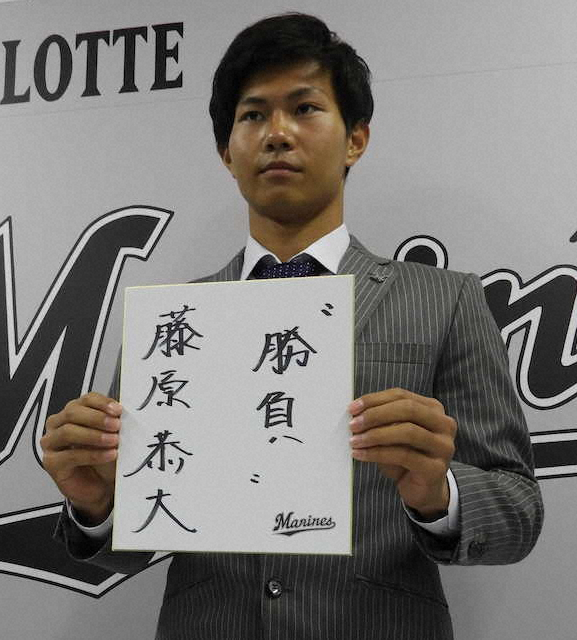 LOTTE
Marines
〝勝負〟
藤原恭大
Marines